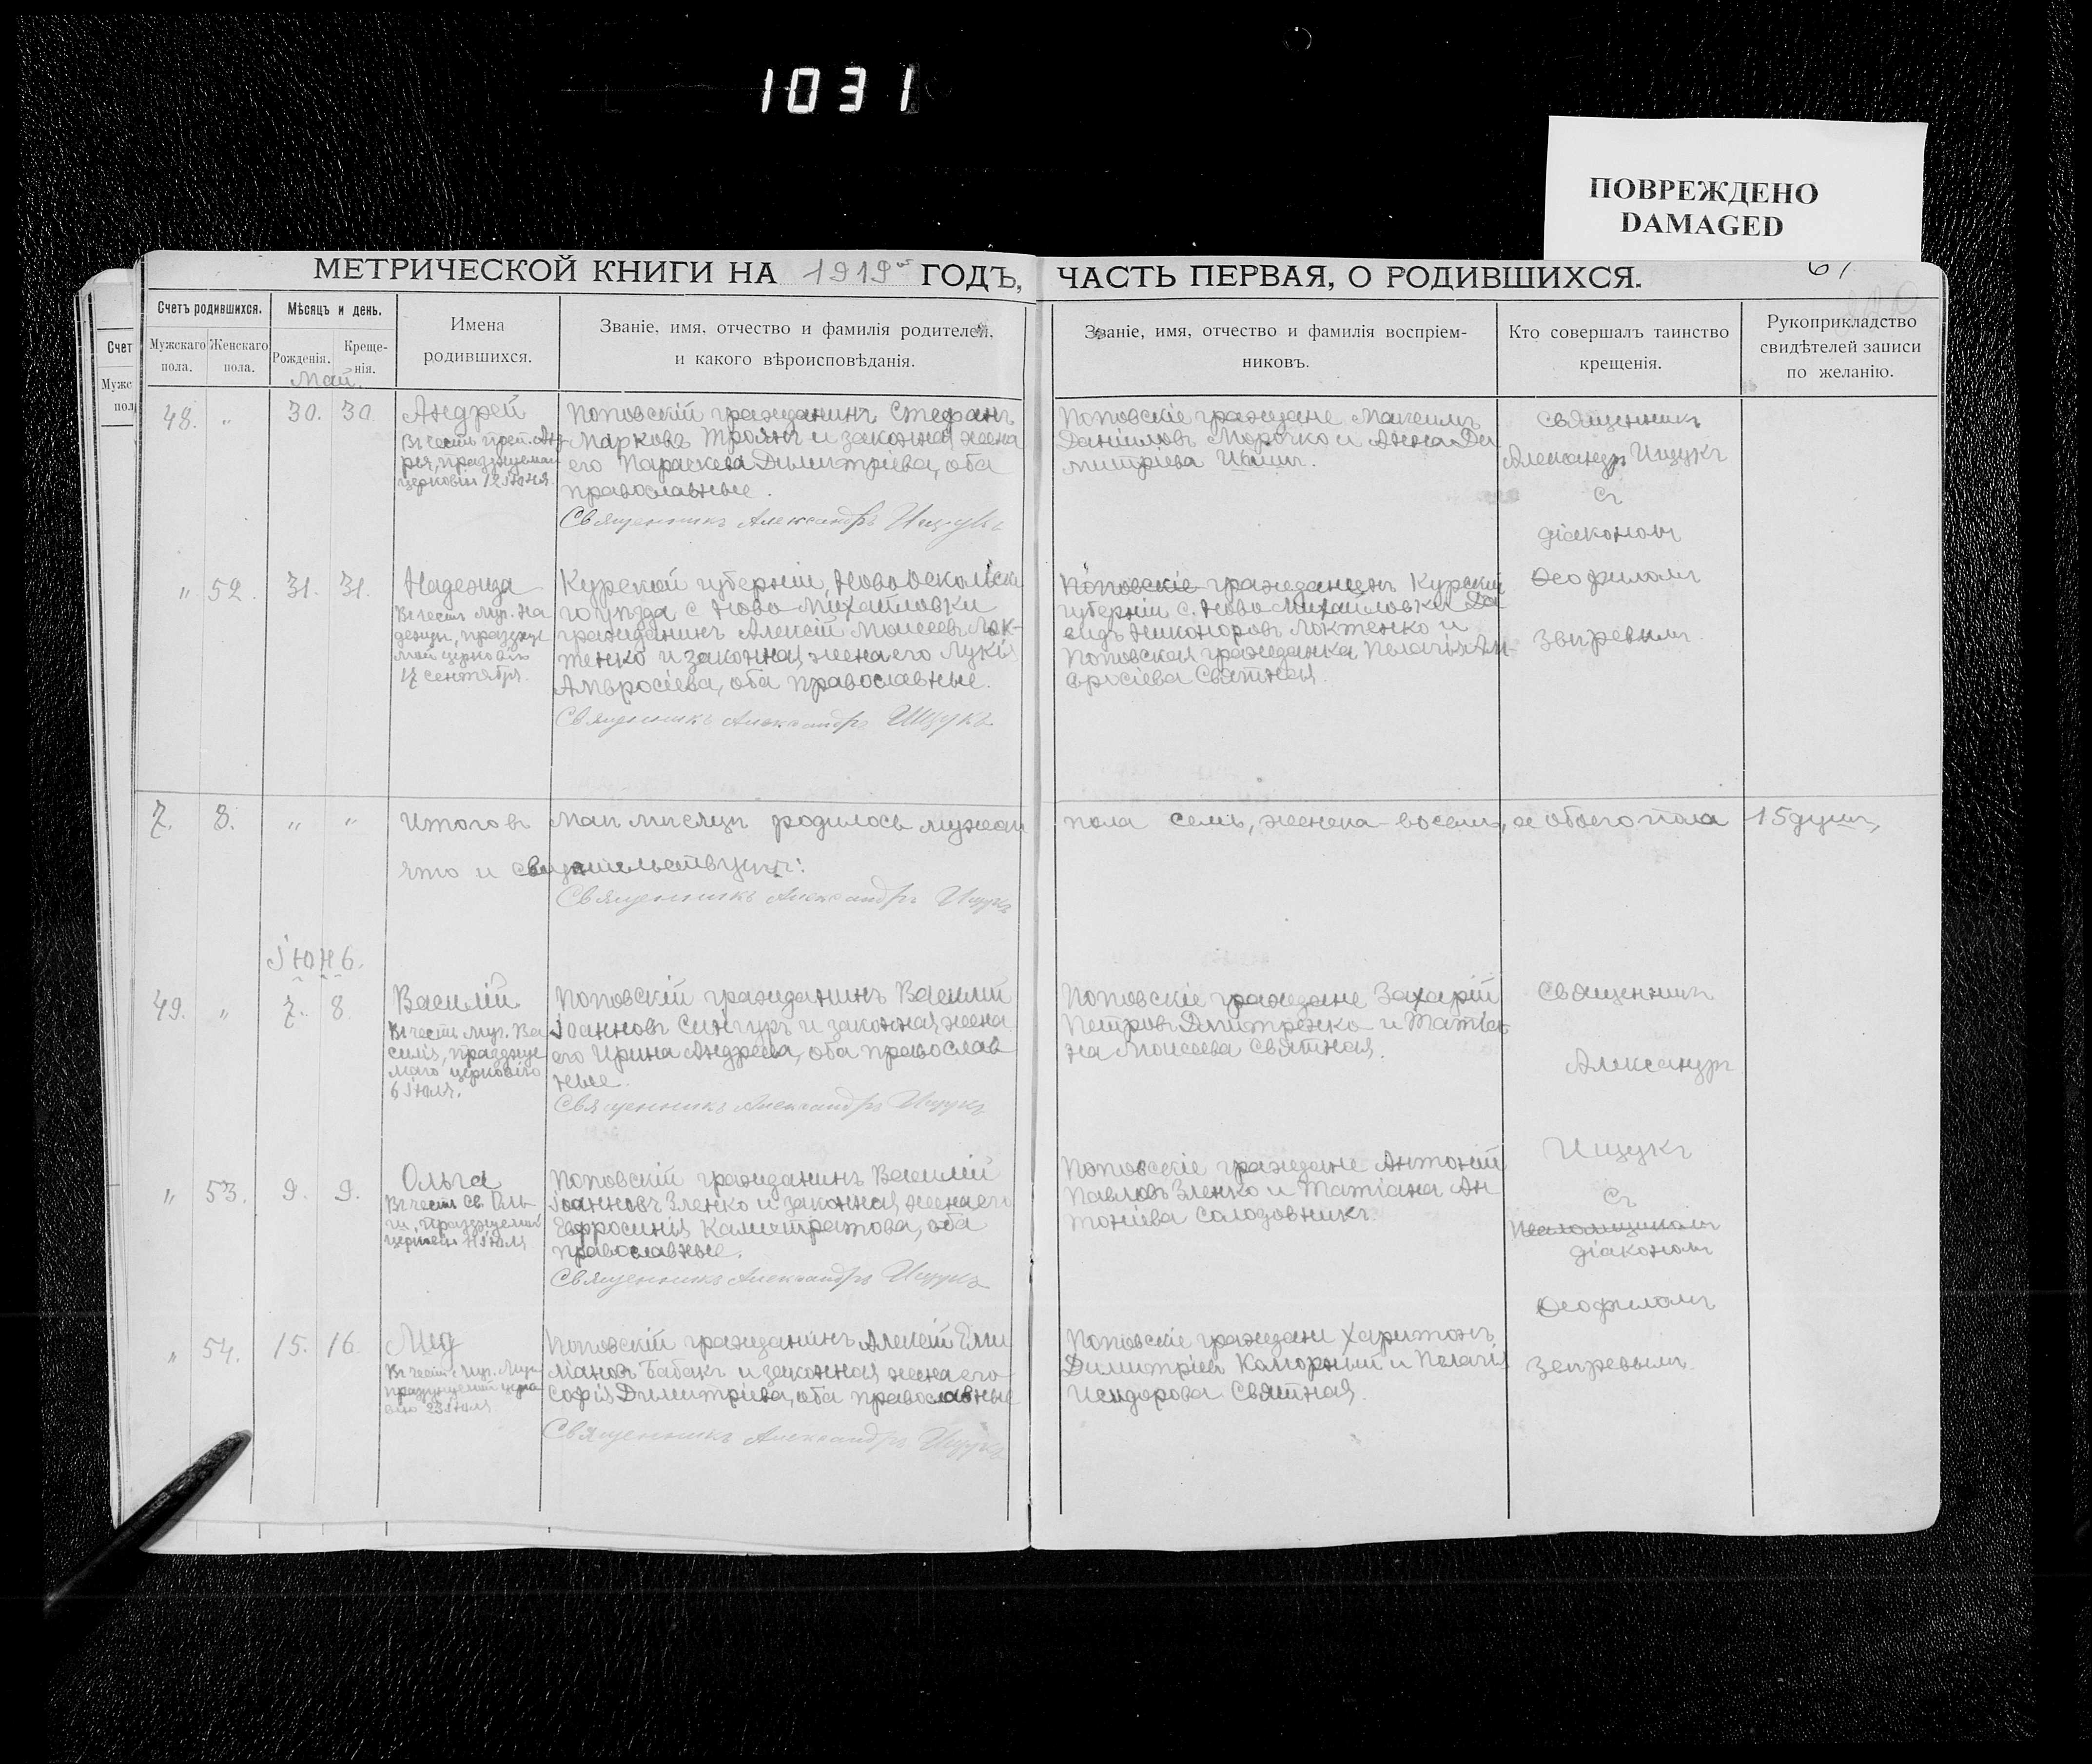 1031
ПОВРЕЖДЕНО
DAMAGED
МЕТРИЧЕСКОЙ КНИГИ НА 1919 ГОДЪ,
ЧАСТЬ ПЕРВАЯ, О РОДИВШИХСЯ.
61
Счетъ родившихся.
Мужскаго пола.
Женскаго пола.
Мѣсяцъ и день.
Рожденія.
Креще-
нія.
Имена
родившихся.
Званіе, имя, отчество и фамилія родителей,
и какого вѣроисповѣданія.
Званіе, имя, отчество и фамилія воспріем-
никовъ.
Кто совершалъ таинство
крещенія.
Рукоприкладство
свидѣтелей записи
по желанію.
Счет
Мужс
пол
Май.
48. " 30. 30.
Андрей
Въ честь преп. Ан-
рея, празднуемаго
церковію 12 Іюня.
Поповскій гражданинъ Стефанъ
Марковъ Троянъ и законная жена
его Параскева Димитріева, оба
православные.
Священникъ Александръ Ищукъ
Поповскіе граждане Максимъ
Даніиловъ Морочко и Анна Ди-
митріева
Священникъ
Александръ Ищукъ
Съ
діакономъ
" 52. 31. 31.
Надежда
Въ честь муч. На
дежды, праздну
мой церковію
17 сентября.
Курской губерніи, Ново Оскольска
го уѣзда с Ново-Михайловки
гражданинъ Алексій Моисеевъ Лок-
тенко и законная жена его Лукія
Амвросіева, оба православные.
Священникъ Александръ Ищукъ
Поповскіе гражданинъ Курской
губерніи с. Ново Михайловки Да
видъ Никоноровъ Локтенко и
Поповская гражданка Пелагія Ам-
вросіева Святная.
Ѳеофиломъ
Звѣревымъ.
7. 8. " "
Итого въ Маи мѣсяцѣ родилось мужеск пола семь, женска-восемь, а обоего пола 15 душъ,
что и свидѣтельствуютъ:
Священникъ Александръ Ищукъ
Іюнь.
49. " 7. 8.
Василій
Въ честь муч. Ва
силія, праздну
маго церковію
6 Іюля.
Поповскій гражданинъ Василій
Іоанновъ Сингуръ и законная жена
его Ирина Андреева, оба православ
ные.
Священникъ Александръ Ищукъ
Поповскіе граждане Захарій
Петровъ Димитренко и Татіа-
на Моисеева Святная.
Священникъ
Александръ
" 53. 9. 9.
Ольга
Въ честь св. Оль-
ги, празднуемой
церковію 11 Іюля
Поповскій гражданинъ Василій
Іоанновъ Зленко и законная жена его
Евфросинія Каллистратова, оба
православные.
Священникъ Александръ Ищукъ
Поповскіе граждане Антоній
Павловъ Зленко и Татіана Ан
тоніева Солодовникъ.
Ищукъ
Съ
Псаломщикомъ
діакономъ
Ѳеофиломъ
" 54. 15. 16.
Въ честь муч.
Поповскій гражданинъ Алексій Еми
ліановъ Бабакъ и законная жена его
Софія Димитріева, оба православные
Священникъ Александръ Ищукъ
Поповскіе граждане Харитонъ
Димитріевъ Каморный и Пелагія
Исидорова Святная.
Звѣревымъ.